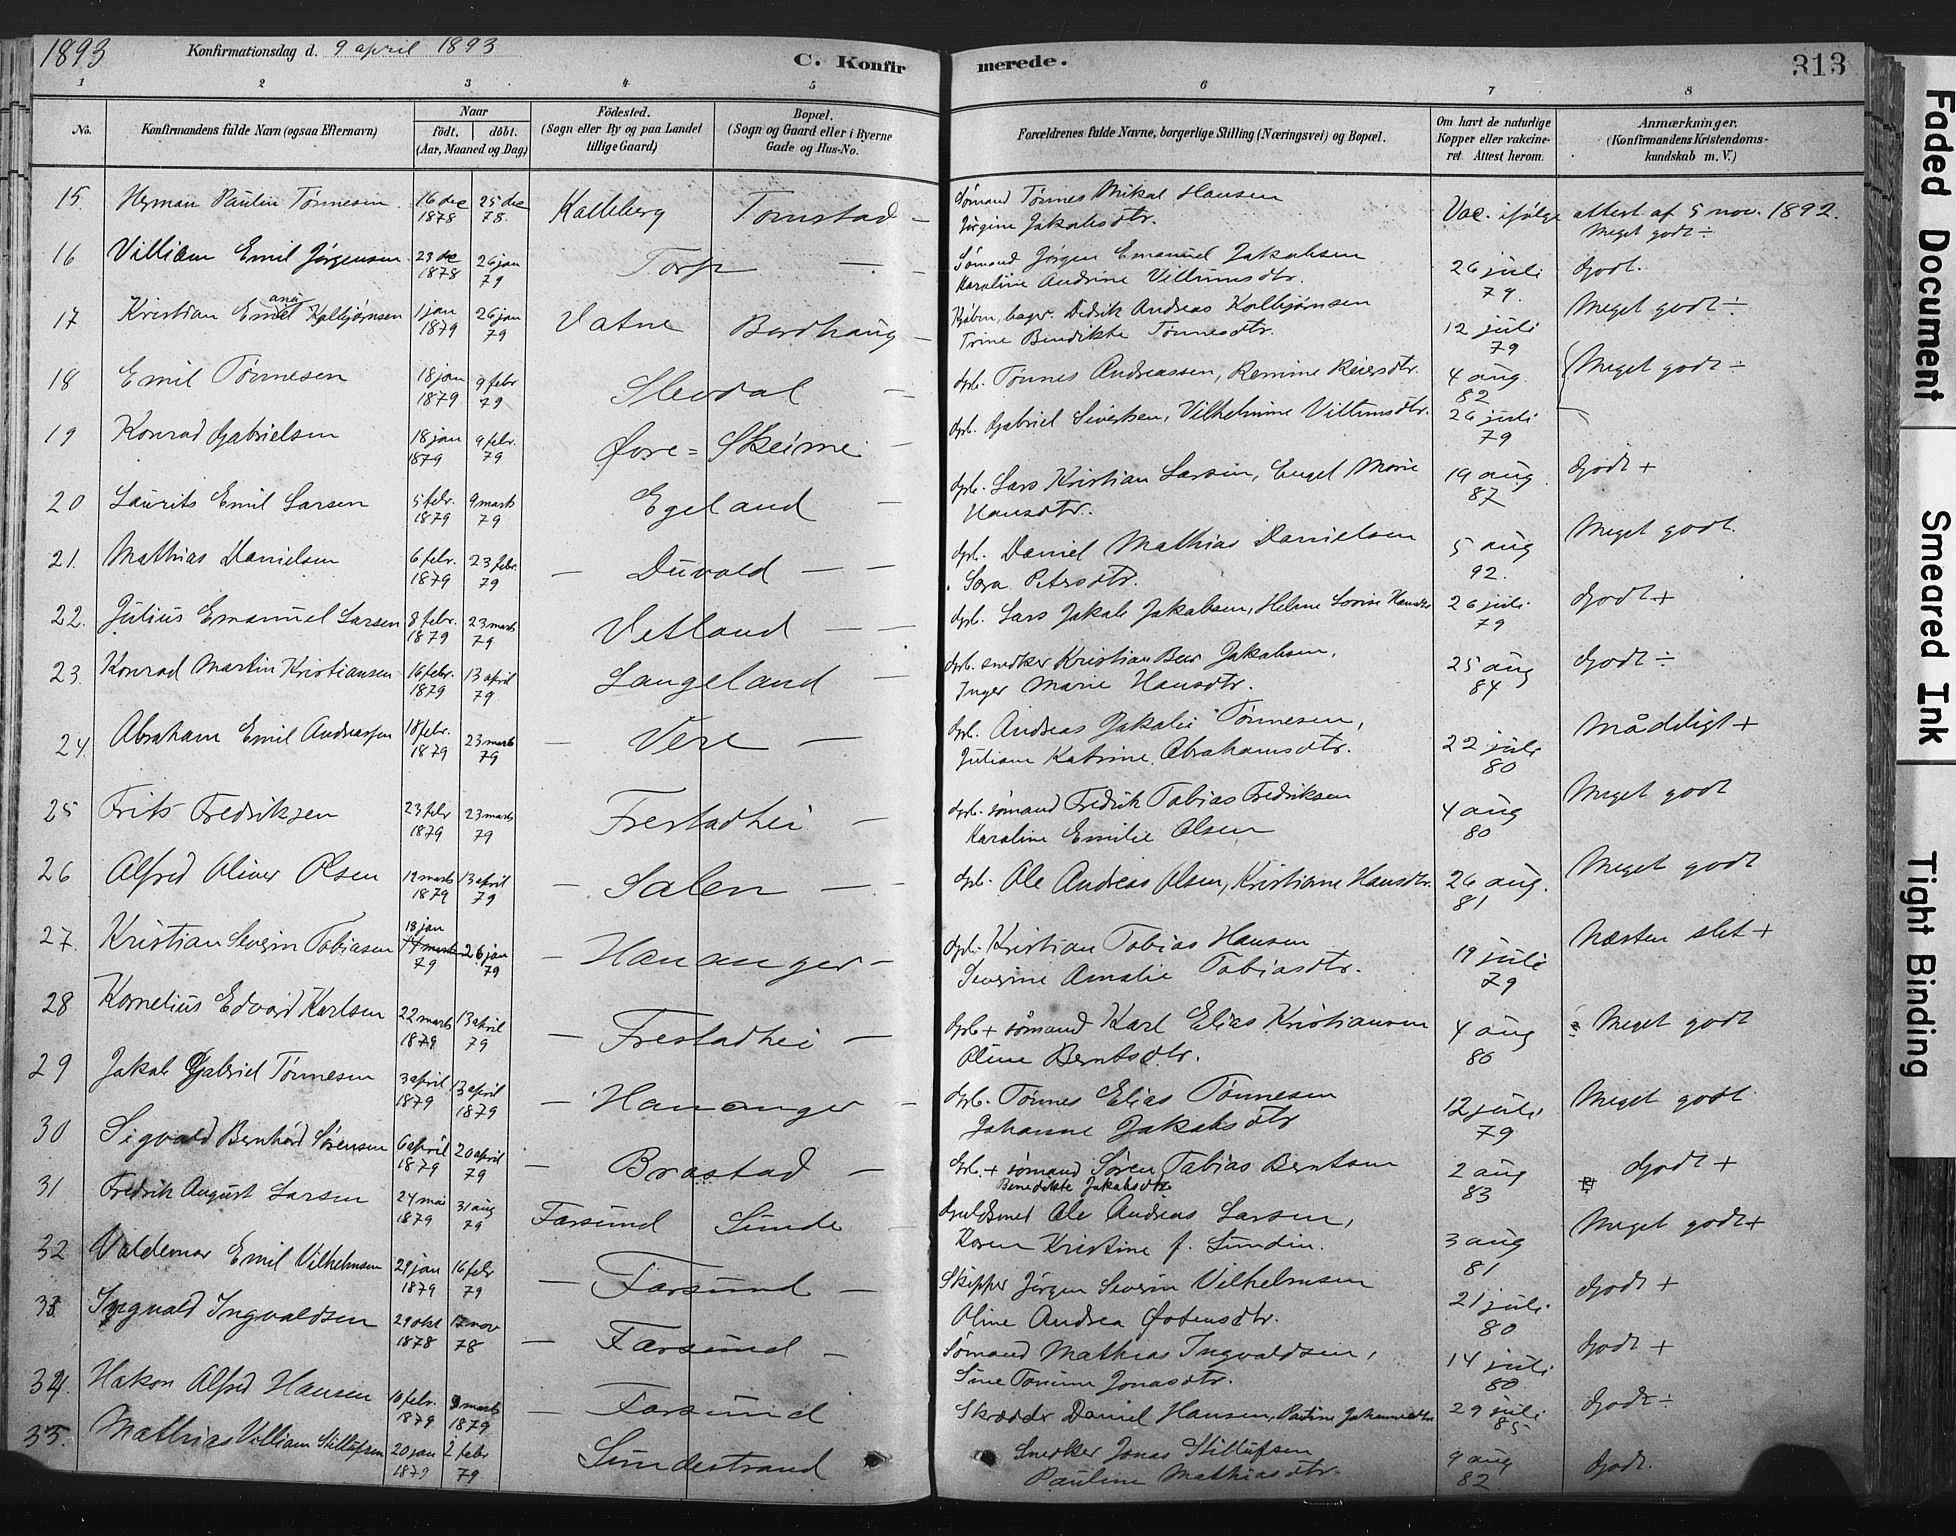 1893 Konfirmationsdag d. 9 april 1893 C. Konfirmerede. 313
1 2 3 4 5 6 7 8
No. Konfirmandens fulde Navn (ogsaa Efternavn) Naar født. døbt. (Aar, Maaned og Dag) Fødested. (Sogn eller By og paa Landet tillige Gaard) Bopæl. (Sogn og Gaard eller i Byerne Gade og Hus-No. Forældrenes fulde Navne, borgerlige Stilling (Næringsvei) og Bopæl. Om havt de naturlige Kopper eller vakcineret. Attest herom. Anmærkninger. (Konfirmandens Kristendomskundskab m. V.)
15. Herman Paulin Tønnesen 16 dec 1878 25 dec 78. Kalleberg Tomstad — Sømand Tønnes Mikal Hansen
Jørgine Jakobsdtr. Vac. ifølge attest af 5 nov. 1892. Meget godt ÷
16 Villiam Emil Jørgensen 23 dec 1878 26 jan 79 Torp — Sømand Jørgen Emanuel Jakobsen
Karoline Andrine Villumsdtr. 26 juli 79. Godt.
17 Kristian Emil Kolbjørnsen 1 jan 1879 26 jan 79 Vatne Bordhaug — Didrik Andreas Kolbjørnsen
Trine Bendikte Tønnesdtr. 12 juli 79 Meget godt ÷
18 Emil Tønnesen 18 jan 1879 9 febr 79 Slevdal — Gpb. Tønnes Andreassen, Remine Reiersdtr. 4 aug. 82 Meget godt ÷
19 Konrad Gabrielsen 18 jan 1879 9 febr. 79 Øvre = Skeime — Gpb. Gabriel Sivertsen, Vilhelmine Villumsdtr. 26 juli 79
20 Laurits Emil Larsen 5 febr. 1879 9 marts 79 Egeland — Gpb. Lars Kristian Larsen, Engel Marie
Hansdtr. 19 aug 87 Godt +
21. Mathias Danielsen 6 febr. 1879 23 febr. 79 — Duvold — — Gpb. Daniel Mathias Danielsen
Sara Petersdtr. 5 aug 92. Meget godt.
22. Julius Emanuel Larsen 8 febr. 1879 23 marts 79 Vetland — — Gpb. Lars Jakob Jakobsen, Helene Lovise Hansdtr 26 juli 79 Godt +
23. Konrad Martin Kristiansen 16 febr. 1879 13 april 79 Langeland — Gpb. snedker Kristian Jakobsen,
Inger Marie Hansdtr. 25 aug 84 Godt ÷
24. Abraham Emil Andreassen 18 febr. 1879 23 marts 79 — Vere — Gpb. Andreas Jakob Tønnesen,
Juliane Katrine Abrahamsdtr. 22 juli 80 Mådeligt +
25 Frits Fredriksen 23 febr 1879 23 marts 79 Frestadhei — Gpb. sømand Fredrik Tobias Fredriksen
Karoline Emilie Olsen 4 aug 80 Meget godt
26 Alfred Oliver Olsen 12 marts 1879 13 april 79 — Salen — — Gpb. Ole Andreas Olsen, Kristiane Hansdtr. 26 aug. 81 Meget godt
27. Kristian Severin Tobiasen 18 jan 79 26 jan 79 — Hananger — Gpb. Kristian Tobias Hansen
Severine Amalie Tobiasdtr. 19 juli 79 Næsten slet +
28 Kornelius Edvard Karlsen 22 marts 1879 13 april 79 — Frestadhei — Gpb + sømand Karl Elias Kristiansen
Oline Berntsdtr. 4 aug 80 Meget godt
29 Jakob Gabriel Tønnesen 3 april 1879 13 april 1879 — Hananger — Gpb. Tønnes Elias Tønnesen
Johanne Jakobsdtr 12 juli 79 Meget godt
30 Sigvald Bernhard Sørensen 6 april 1879 20 april 79 — Brastad — Gpb. + sømand Søren Tobias Berntsen
Benedikte Jakobsdtr 2 aug 83 Godt +
31 Fredrik August Larsen 24 mai 1879 31 aug 79 Farsund Sunde — Guldsmed Ole Andreas Larsen,
Karen Kristine f. Lundin. 3 aug 81 Meget godt +
32 Valdemar Emil Vilhelmsen 29 jan 1879 16 febr 79 — Farsund — Skipper Jørgen Severin Vilhelmsen
Oline Andrea Østensdtr. 21 juli 80 Godt +
33 Ingvald Ingvaldsen 29 okt 1878 17 nov 78 — Farsund — Sømand Mathias Ingvaldsen,
Sine Tomine Jonasdtr. 14 juli 80 Godt +
34. Hakon Alfred Hansen 10 febr. 1879 9 marts 1879 — Farsund Skrædder Daniel Hansen, 29 juli 85 Godt ÷
35. Mathias Villiam Stillufsen 20 jan 1879 2 febr 79 Sundestrand Snedker Jonas Stillufsen
Pauline Mathiasdtr. 9 aug 82 Godt.
Faded Document
Smeared Ink
Tight Binding